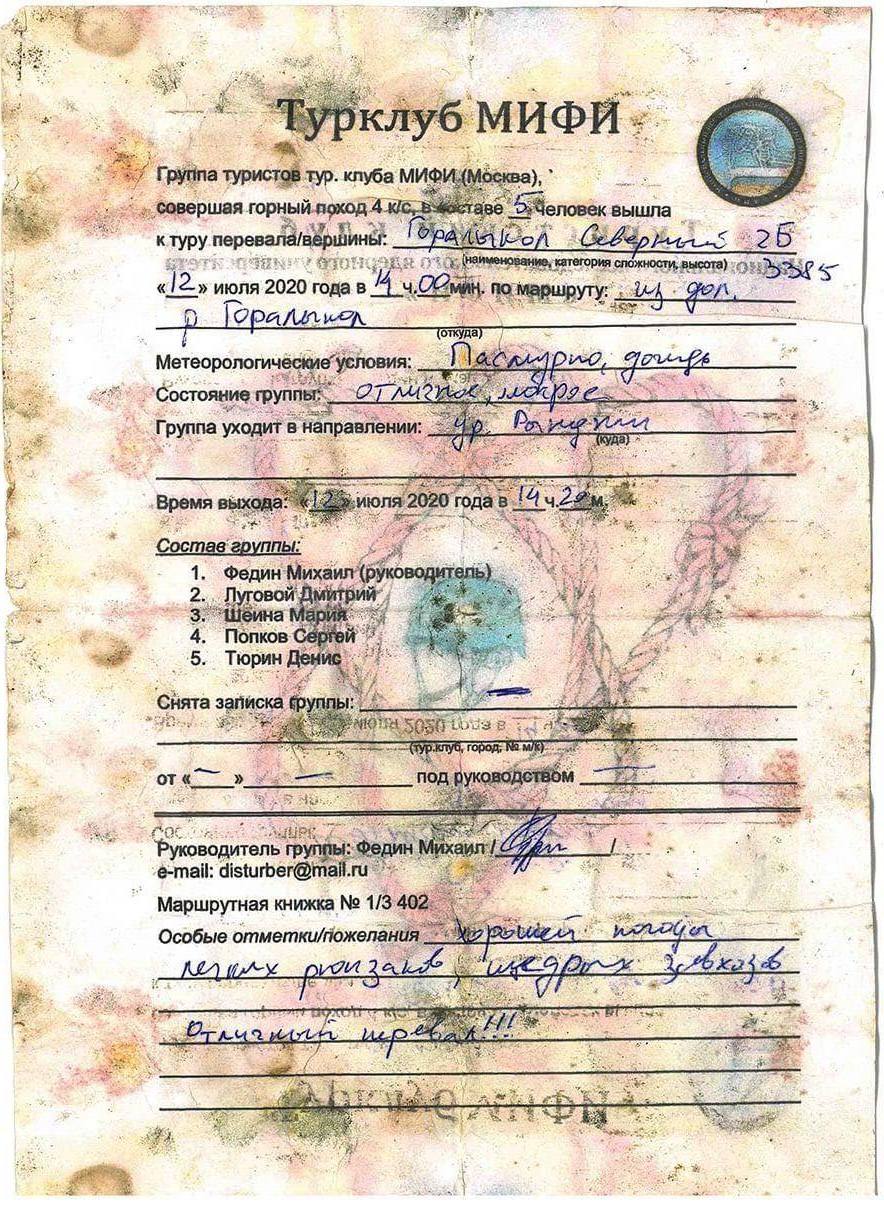 Турклуб МИФИ
Группа туристов тур. клуба МИФИ (Москва),
совершая горный поход 4 к/с, в составе 5 человек вышла
к туру перевала/вершины: Горалыкол Северный 2Б
(наименование, категория сложности, высота) 3385
«12» июля 2020 года в 14 ч.00 мин. по маршруту: из дол.
р Горалыкол
(откуда)
Метеорологические условия: Пасмурно, дождь
Состояние группы: отличное, мокрое
Группа уходит в направлении: ур.
(куда)
Время выхода: «12» июля 2020 года в 14 ч.20 м.
Состав группы:
1. Федин Михаил (руководитель)
2. Луговой Дмитрий
3. Шеина Мария
4. Попков Сергей
5. Тюрин Денис
Снята записка группы: —
(тур.клуб, город, № м/к)
от «—» — под руководством —
Руководитель группы: Федин Михаил / /
e-mail: disturber@mail.ru
Маршрутная книжка № 1/3 402
Особые отметки/пожелания хорошей погоды
легких рюкзаков, щедрых завхозов
Отличный перевал!!!